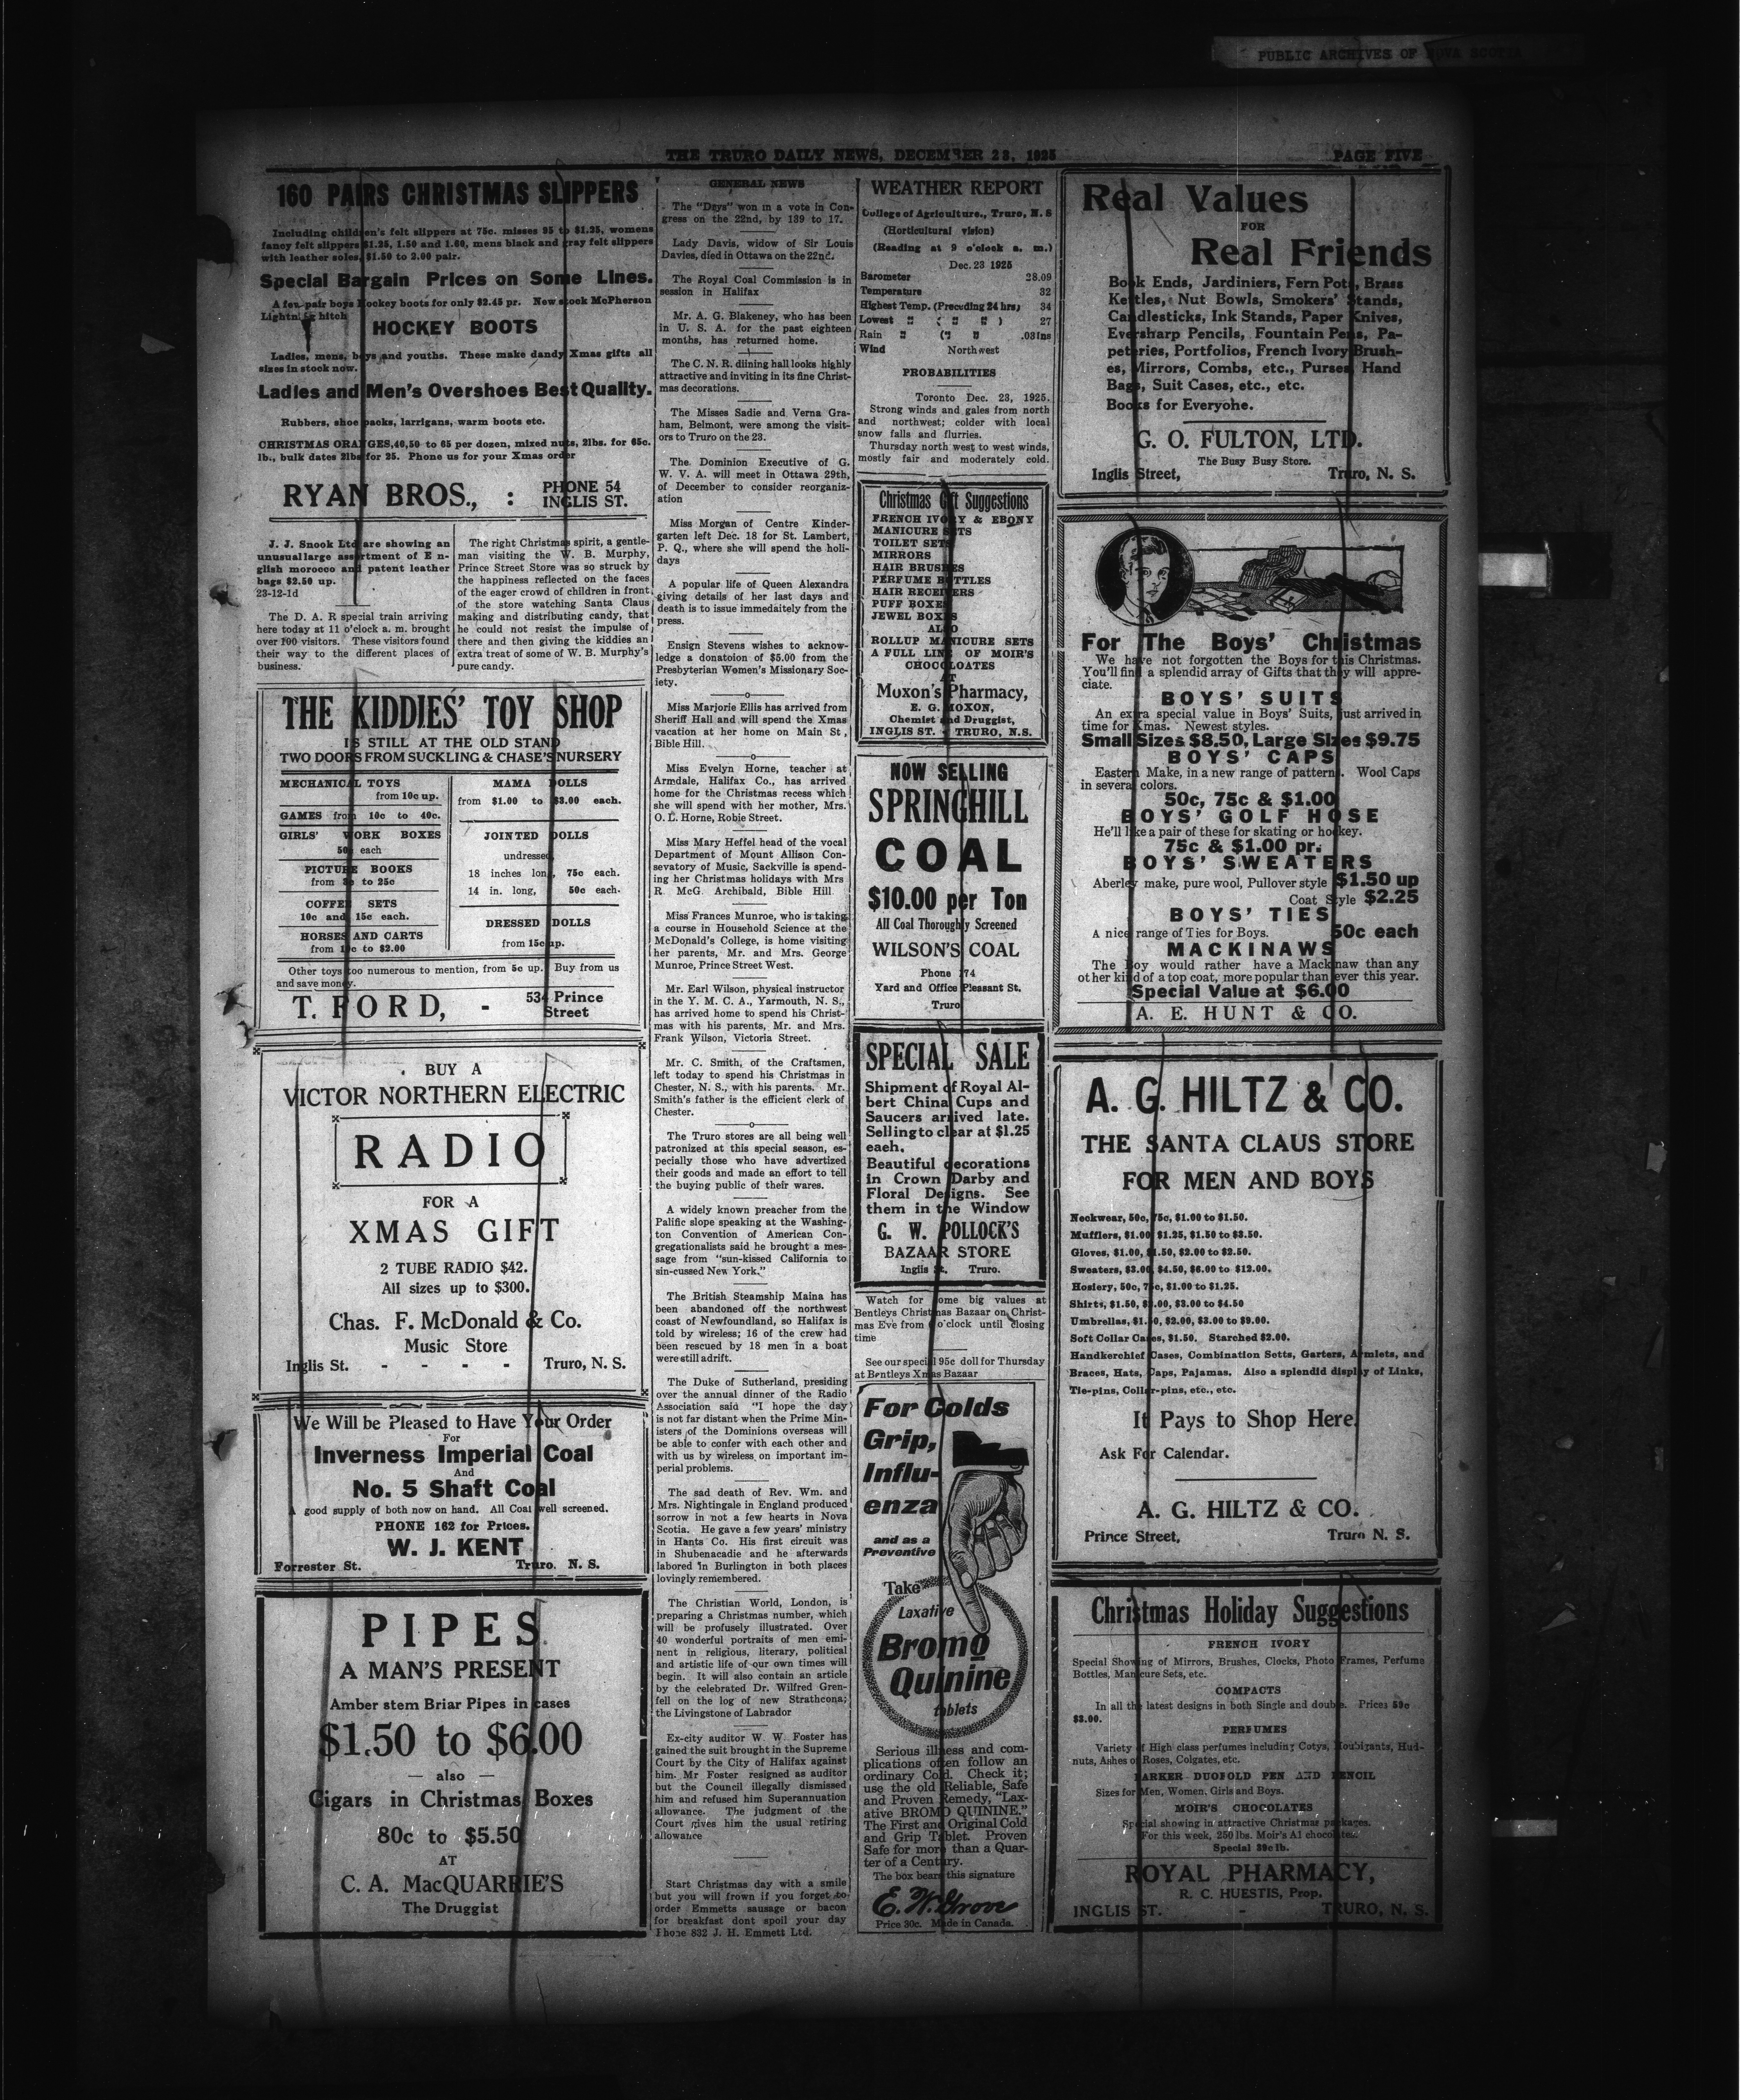 PUBLIC ARCHIVES OF NOVA SCOTIA
THE TRURO DAILY NEWS, DECEMBER 23, 1925
PAGE FIVE
160 PAIRS CHRISTMAS SLIPPERS
Including children's felt slippers at 75c. misses 95 to $1.25, womens
fancy felt slippers $1.25, 1.50 and 1.60, mens black and gray felt slippers
with leather soles, $1.50 to 2.00 pair.
Special Bargain Prices on Some Lines.
A few pair boys hockey boots for only $2.45 pr. New stock McPherson
Lightning hitch
HOCKEY BOOTS
Ladies, mens, boys and youths. These make dandy Xmas gifts all
sizes in stock now.
Ladies and Men's Overshoes Best Quality.
Rubbers, shoe packs, larrigans, warm boots etc.
CHRISTMAS ORANGES,40,50 to 65 per dozen, mixed nuts, 2lbs. for 65c.
lb., bulk dates 2lbs for 25. Phone us for your Xmas order
RYAN BROS., : PHONE 54
INGLIS ST.
J. J. Snook Ltd are showing an
unusual large assortment of E n-
glish morocco and patent leather
bags $2.50 up.
23-12-1d
The D. A. R special train arriving
here today at 11 o'clock a. m. brought
over 100 visitors. These visitors found
their way to the different places of
business.
The right Christmas spirit, a gentle-
man visiting the W. B. Murphy,
Prince Street Store was so struck by
the happiness reflected on the faces
of the eager crowd of children in front
of the store watching Santa Claus
making and distributing candy, that
he could not resist the impulse of
there and then giving the kiddies an
extra treat of some of W. B. Murphy's
pure candy.
THE KIDDIES' TOY SHOP
IS STILL AT THE OLD STAND
TWO DOORS FROM SUCKLING & CHASE'S NURSERY
MECHANICAL TOYS
from 10c up.
GAMES from 10c to 40c.
GIRLS' WORK BOXES
50c each
PICTURE BOOKS
from to 25c
COFFEE SETS
10c and 15c each.
HORSES AND CARTS
from to $2.00
MAMA DOLLS
from $1.00 to $3.00 each.
JOINTED DOLLS
undressed,
18 inches long, 75c each.
14 in. long, 50c each.
DRESSED DOLLS
from 15c up.
Other toys too numerous to mention, from 5c up. Buy from us
and save money.
T. FORD, - 534 Prince
Street
BUY A
VICTOR NORTHERN ELECTRIC
RADIO
FOR A
XMAS GIFT
2 TUBE RADIO $42.
All sizes up to $300.
Chas. F. McDonald & Co.
Music Store
Inglis St. - - - - Truro, N. S.
We Will be Pleased to Have Your Order
For
Inverness Imperial Coal
And
No. 5 Shaft Coal
A good supply of both now on hand. All Coal well screened.
PHONE 162 for Prices.
W. J. KENT
Forrester St. Truro. N. S.
PIPES
A MAN'S PRESENT
Amber stem Briar Pipes in cases
$1.50 to $6.00
— also —
Cigars in Christmas Boxes
80c to $5.50
AT
C. A. MacQUARRIE'S
The Druggist
GENERAL NEWS
The "Drys" won in a vote in Con-
gress on the 22nd, by 139 to 17.
Lady Davis, widow of Sir Louis
Davies, died in Ottawa on the 22nd.
The Royal Coal Commission is in
session in Halifax
Mr. A. G. Blakeney, who has been
in U. S. A. for the past eighteen
months, has returned home.
The C. N. R. diining hall looks highly
attractive and inviting in its fine Christ-
mas decorations.
The Misses Sadie and Verna Gra-
ham, Belmont, were among the visit-
ors to Truro on the 23.
The Dominion Executive of G.
W. V. A. will meet in Ottawa 29th,
of December to consider reorganiz-
ation
Miss Morgan of Centre Kinder-
garten left Dec. 18 for St. Lambert,
P. Q., where she will spend the holi-
days
A popular life of Queen Alexandra
giving details of her last days and
death is to issue immedaitely from the
press.
Ensign Stevens wishes to acknow-
ledge a donatoion of $5.00 from the
Presbyterian Women's Missionary Soc-
iety.
Miss Marjorie Ellis has arrived from
Sheriff Hall and will spend the Xmas
vacation at her home on Main St,
Bible Hill.
Miss Evelyn Horne, teacher at
Armdale, Halifax Co., has arrived
home for the Christmas recess which
she will spend with her mother, Mrs.
O. L. Horne, Robie Street.
Miss Mary Heffel head of the vocal
Department of Mount Allison Con-
sevatory of Music, Sackville is spend-
ing her Christmas holidays with Mrs
R. McG. Archibald, Bible Hill.
Miss Frances Munroe, who is taking
a course in Household Science at the
McDonald's College, is home visiting
her parents, Mr. and Mrs. George
Munroe, Prince Street West.
Mr. Earl Wilson, physical instructor
in the Y. M. C. A., Yarmouth, N. S.,
has arrived home to spend his Christ-
mas with his parents, Mr. and Mrs.
Frank Wilson, Victoria Street.
Mr. C. Smith, of the Craftsmen,
left today to spend his Christmas in
Chester, N. S., with his parents. Mr.
Smith's father is the efficient clerk of
Chester.
The Truro stores are all being well
patronized at this special season, es-
pecially those who have advertized
their goods and made an effort to tell
the buying public of their wares.
A widely known preacher from the
Palific slope speaking at the Washing-
ton Convention of American Con-
gregationalists said he brought a mes-
sage from "sun-kissed California to
sin-cussed New York."
The British Steamship Maina has
been abandoned off the northwest
coast of Newfoundland, so Halifax is
told by wireless; 16 of the crew had
been rescued by 18 men in a boat
were still adrift.
The Duke of Sutherland, presiding
over the annual dinner of the Radio
Association said "I hope the day
is not far distant when the Prime Min-
isters of the Dominions overseas will
be able to confer with each other and
with us by wireless on important im-
perial problems.
The sad death of Rev. Wm. and
Mrs. Nightingale in England produced
sorrow in not a few hearts in Nova
Scotia. He gave a few years' ministry
in Hants Co. His first circuit was
in Shubenacadie and he afterwards
labored in Burlington in both places
lovingly remembered.
The Christian World, London, is
preparing a Christmas number, which
will be profusely illustrated. Over
40 wonderful portraits of men emi-
nent in religious, literary, political
and artistic life of our own times will
begin. It will also contain an article
by the celebrated Dr. Wilfred Gren-
fell on the log of new Strathcona;
the Livingstone of Labrador
Ex-city auditor W. W. Foster has
gained the suit brought in the Supreme
Court by the City of Halifax against
him. Mr Foster resigned as auditor
but the Council illegally dismissed
him and refused him Superannuation
allowance. The judgment of the
Court gives him the usual retiring
allowance
Start Christmas day with a smile
but you will frown if you forget to
order Emmetts sausage or bacon
for breakfast dont spoil your day
Phone 832 J. H. Emmett Ltd.
WEATHER REPORT
College of Agriculture., Truro, N. S
(Horticultural vision)
(Reading at 9 o'clock a. m.)
Dec. 23 1925
Barometer 28.09
Temperature 32
Highest Temp. (Preceding 24 hrs) 34
Lowest " ( " " ) 27
Rain " (" " .03ins
Wind Northwest
PROBABILITIES
Toronto Dec. 23, 1925.
Strong winds and gales from north
and northwest; colder with local
snow falls and flurries.
Thursday north west to west winds,
mostly fair and moderately cold.
Christmas Gift Suggestions
FRENCH IVORY & EBONY
MANICURE SETS
TOILET SETS
MIRRORS
HAIR BRUSHES
PERFUME BOTTLES
HAIR RECEIVERS
PUFF BOXES
JEWEL BOXES
ALSO
ROLLUP MANICURE SETS
A FULL LINE OF MOIR'S
CHOCOLOATES
AT
Moxon's Pharmacy,
E. G. MOXON,
Chemist and Druggist,
INGLIS ST. - TRURO, N.S.
NOW SELLING
SPRINGHILL
COAL
$10.00 per Ton
All Coal Thoroughly Screened
WILSON'S COAL
Phone 74
Yard and Office Pleasant St.
Truro
SPECIAL SALE
Shipment of Royal Al-
bert China Cups and
Saucers arrived late.
Selling to clear at $1.25
each.
Beautiful decorations
in Crown Darby and
Floral Designs. See
them in the Window
G. W. POLLOCK'S
BAZAAR STORE
Inglis St. Truro.
Watch for some big values at
Bentleys Christmas Bazaar on Christ-
mas Eve from o'clock until closing
time
See our special 95c doll for Thursday
at Bentleys Xmas Bazaar
For Colds
Grip,
Influ-
enza
and as a
Preventive
Take
Laxative
Bromo
Quinine
tablets
Serious illness and com-
plications often follow an
ordinary Cold. Check it;
use the old Reliable, Safe
and Proven Remedy, "Lax-
ative BROMO QUININE."
The First and Original Cold
and Grip Tablet. Proven
Safe for more than a Quar-
ter of a Century.
The box bears this signature
E. W. Grove
Price 30c. Made in Canada.
Real Values
FOR
Real Friends
Book Ends, Jardiniers, Fern Pots, Brass
Kettles, Nut Bowls, Smokers' Stands,
Candlesticks, Ink Stands, Paper Knives,
Eversharp Pencils, Fountain Pens, Pa-
peteries, Portfolios, French Ivory Brush-
es, Mirrors, Combs, etc., Purses, Hand
Bags, Suit Cases, etc., etc.
Books for Everyone.
G. O. FULTON, LTD.
The Busy Busy Store.
Inglis Street, Truro, N. S.
For The Boys' Christmas
We have not forgotten the Boys for this Christmas.
You'll find a splendid array of Gifts that they will appre-
ciate.
BOYS' SUITS
An extra special value in Boys' Suits, just arrived in
time for Xmas. Newest styles.
Small Sizes $8.50, Large Sizes $9.75
BOYS' CAPS
Eastern Make, in a new range of patterns. Wool Caps
in several colors.
50c, 75c & $1.00
BOYS' GOLF HOSE
He'll like a pair of these for skating or hockey.
75c & $1.00 pr.
BOYS' SWEATERS
Aberley make, pure wool, Pullover style $1.50 up
Coat Style $2.25
BOYS' TIES
A nice range of Ties for Boys. 50c each
MACKINAWS
The Boy would rather have a Mackinaw than any
other kind of a top coat, more popular than ever this year.
Special Value at $6.00
A. E. HUNT & CO.
A. G. HILTZ & CO.
THE SANTA CLAUS STORE
FOR MEN AND BOYS
Neckwear, 50c, 75c, $1.00 to $1.50.
Mufflers, $1.00 $1.25, $1.50 to $3.50.
Gloves, $1.00, $1.50, $2.00 to $2.50.
Sweaters, $3.00, $4.50, $6.00 to $12.00.
Hosiery, 50c, 75c, $1.00 to $1.25.
Shirts, $1.50, $2.00, $3.00 to $4.50
Umbrellas, $1.50, $2.00, $3.00 to $9.00.
Soft Collar Cases, $1.50. Starched $2.00.
Handkerchief Cases, Combination Setts, Garters, Armlets, and
Braces, Hats, Caps, Pajamas. Also a splendid display of Links,
Tie-pins, Collar-pins, etc., etc.
It Pays to Shop Here.
Ask For Calendar.
A. G. HILTZ & CO.
Prince Street, Truro N. S.
Christmas Holiday Suggestions
FRENCH IVORY
Special Showing of Mirrors, Brushes, Clocks, Photo Frames, Perfume
Bottles, Manicure Sets, etc.
COMPACTS
In all the latest designs in both Single and double. Prices 59c
$3.00.
PERFUMES
Variety of High class perfumes including Cotys, Houbigants, Hud-
nuts, Ashes of Roses, Colgates, etc.
PARKER DUOFOLD PEN AND PENCIL
Sizes for Men, Women, Girls and Boys.
MOIR'S CHOCOLATES
Special showing in attractive Christmas packages.
For this week, 250 lbs. Moir's A1 chocolates.
Special 39c lb.
ROYAL PHARMACY,
R. C. HUESTIS, Prop.
INGLIS ST. - TRURO, N. S.